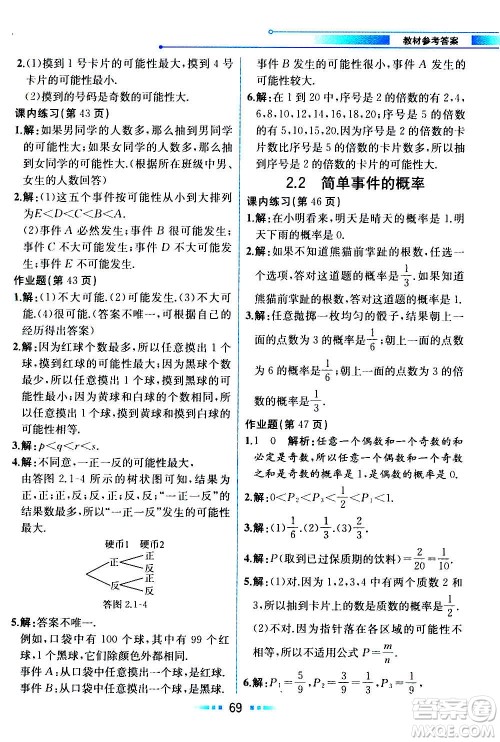 教材参考答案
2.(1)摸到 1 号卡片的可能性最大,摸到 4 号
卡片的可能性最小.
(2)摸到的号码是奇数的可能性大.
课内练习(第 43 页)
1.解:如果男同学的人数多,那么抽到男同学
的可能性大;如果女同学的人数多,那么抽
到女同学的可能性大.(根据所在班级中男、
女生的人数回答)
2.解:(1)这五个事件按可能性从小到大排列
为 E<D<A<C<B.
(2)事件 A 必然发生;事件 B,C,D 可能发
生;事件 E 不可能发生.
作业题(第 43 页)
1.解:(1)不大可能.(2)很可能.(3)可能.
(4)很可能.(答案不唯一,可根据自己的
经历得出答案)
2.解:因为红球个数最多,所以任意摸出 1 个
球,摸到红球的可能性最大.因为黑球个数
最少,所以任意摸出 1 个球,摸到黑球的可
能性最小.因为黄球和白球个数相等,所以
任意摸出 1 个球,摸到黄球和摸到白球的
可能性一样.
3.解:p<q<r<s.
4.解:不同意,一正一反的可能性最大.
由答图 2.1-4 所示的树状图可知,结果为
正,正;正,反;反,正;反,反.“一正一反”的
结果数最多,所以“一正一反”发生的可能性
最大.
硬币1 硬币2
正 正
反
反 正
反
答图 2.1-4
5.解:答案不唯一.
例如,口袋中有 100 个球,其中有 99 个红
球,1 个黑球,它们除颜色外都相同.
事件 A:从口袋中任意摸出一个球是红球.
事件 B:从口袋中任意摸出一个球是黑球.
事件 A 发生的可能性很大,事件 B 发生的
可能性较大.
6.解:在 1 到 20 中,序号是 2 的倍数的有 2,4,
6,8,10,12,14,16,18,20.序号是 5 的倍数
的有 5,10,15,20.因为序号是 2 的倍数的卡
片数比序号是 5 的倍数的卡片数多,所以抽
到序号是 2 的倍数的卡片的可能性大.
2.2 简单事件的概率
课内练习(第 46 页)
1.解:在小明看来,明天是晴天的概率是 1.
明天下雨的概率是 0.
2.解:如果不知道熊猫前掌趾的个数,任意选
一个选项,答对这道题的概率是 1/4.如果知道
熊猫前掌趾的个数,答对这道题的概率是 1.
3.解:任意抛掷一枚均匀的骰子,朝上一面的
点数为 1 的概率是 1/6;朝上一面的点数为 2
的概率是 1/6;事件“朝上一面的点数为 3,朝
上一面的点数为 4,朝上一面的点数为 5,朝上一面的点数
为 6 的概率都是 1/6.
作业题(第 47 页)
1.1 0 解析:任意一个偶数和一个奇数的和
必定是奇数,所以任意一个偶数和一个奇数
的和是奇数的概率是 1,是偶数的概率是 0.
3.解:(1)1/6.(2)1/3.(3)1/2.
4.解:P=(取到已过保质期的饮料)=2/20=1/10.
5.解:(1)对.因为 1,2,3,4 中质数有 2 个,合
数有 1 个,所以抽到卡片上的数是质数的概
率是 1/2.
(2)不对.因为指针落在各区域的可能性不
一样,所以不适用公式 P=m/n.
69